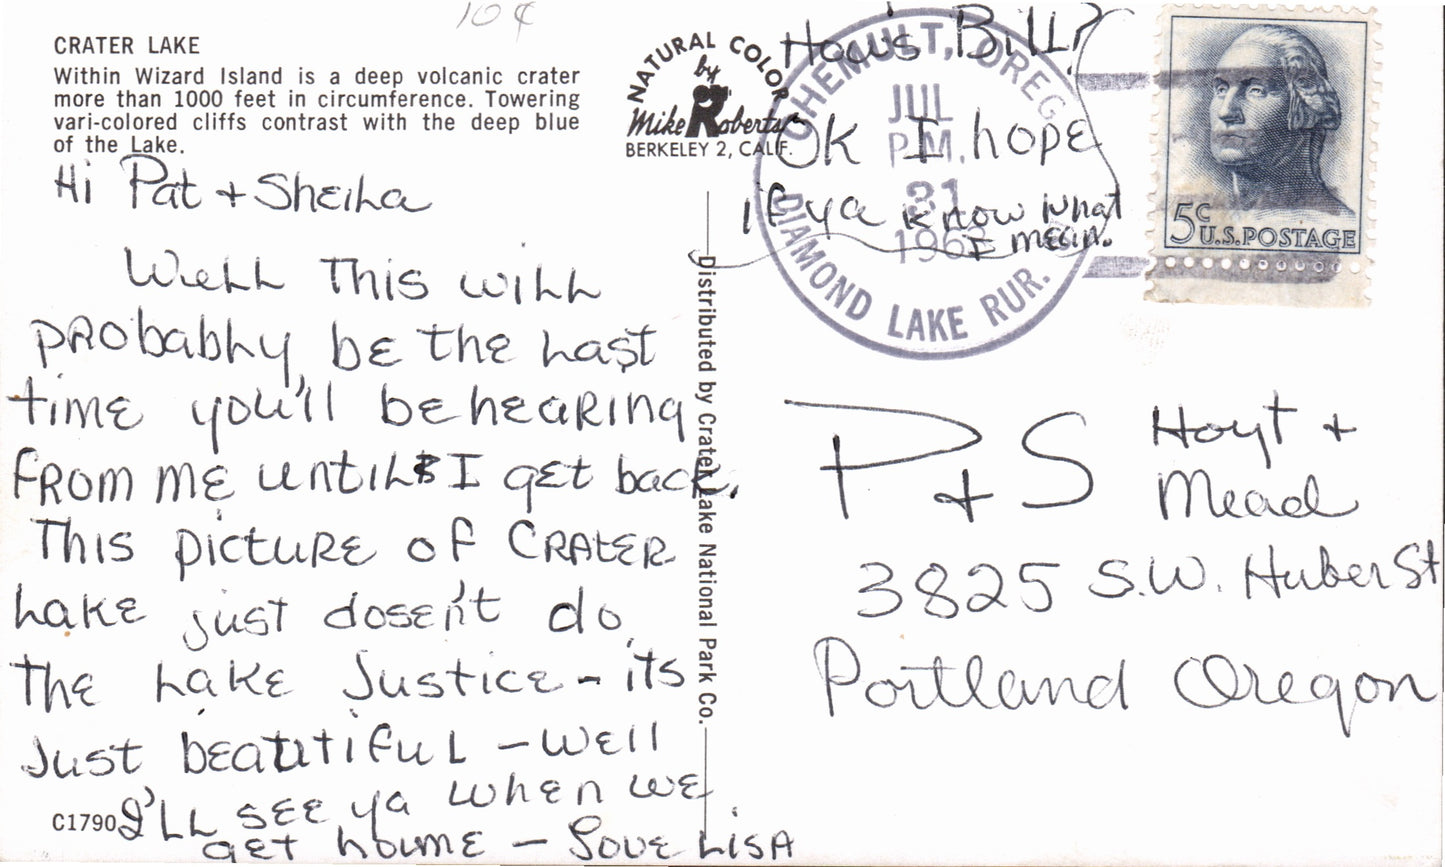 10¢
CRATER LAKE
Within Wizard Island is a deep volcanic crater
more than 1000 feet in circumference. Towering
vari-colored cliffs contrast with the deep blue
of the Lake.
Hi Pat + Sheila
Well This will
probably be the last
time you'll be hearing
from me until I get back.
This picture of Crater
Lake just dosen't do
the Lake Justice - its
Just beautiful - well
I'll see ya when we
get houme - Love Lisa
C1790
NATURAL COLOR
by
Mike Roberts
BERKELEY 2, CALIF.
Distributed by Crater Lake National Park Co.
How's Bill?
Ok I hope
if ya know what
I mean.
CHEMULT, OREG.
JUL
P.M.
31
196
DIAMOND LAKE RUR.
5c
U.S. POSTAGE
P + S Hoyt +
Mead
3825 S.W. Huber St
Portland Oregon